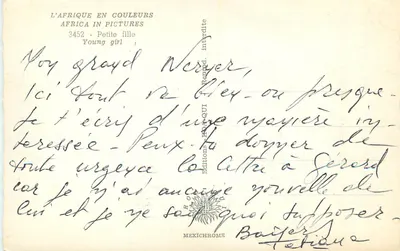 L'AFRIQUE EN COULEURS
AFRICA IN PICTURES
3452 - Petite fille
Young girl
Mon grand Werner,
Ici tout va bien - ou presque -
Je t'écris d'une manière in-
téressée - Peux-tu donner de
toute urgence la lettre à Gérard
car je n'ai aucune nouvelle de
lui et je ne sais quoi supposer -
Baisers
Tatiana
Editions HOA-QUI
interdite
MEXICHROME